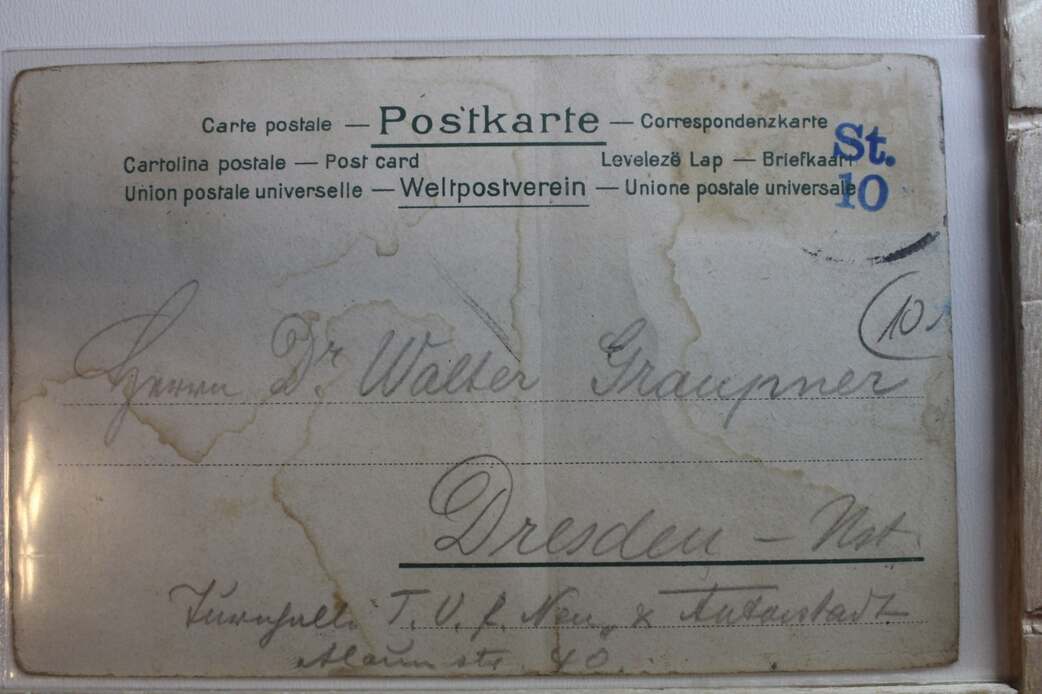 Carte postale — Postkarte — Correspondenzkarte
Cartolina postale — Post card Levelezö Lap — Briefkaart
Union postale universelle — Weltpostverein — Unione postale universale
St.
10
10
Herrn Dr Walter Graupner
Dresden – Nst.
Turnhalle T. V. f. Neu- & Antonstadt
Alaunstr. 40.